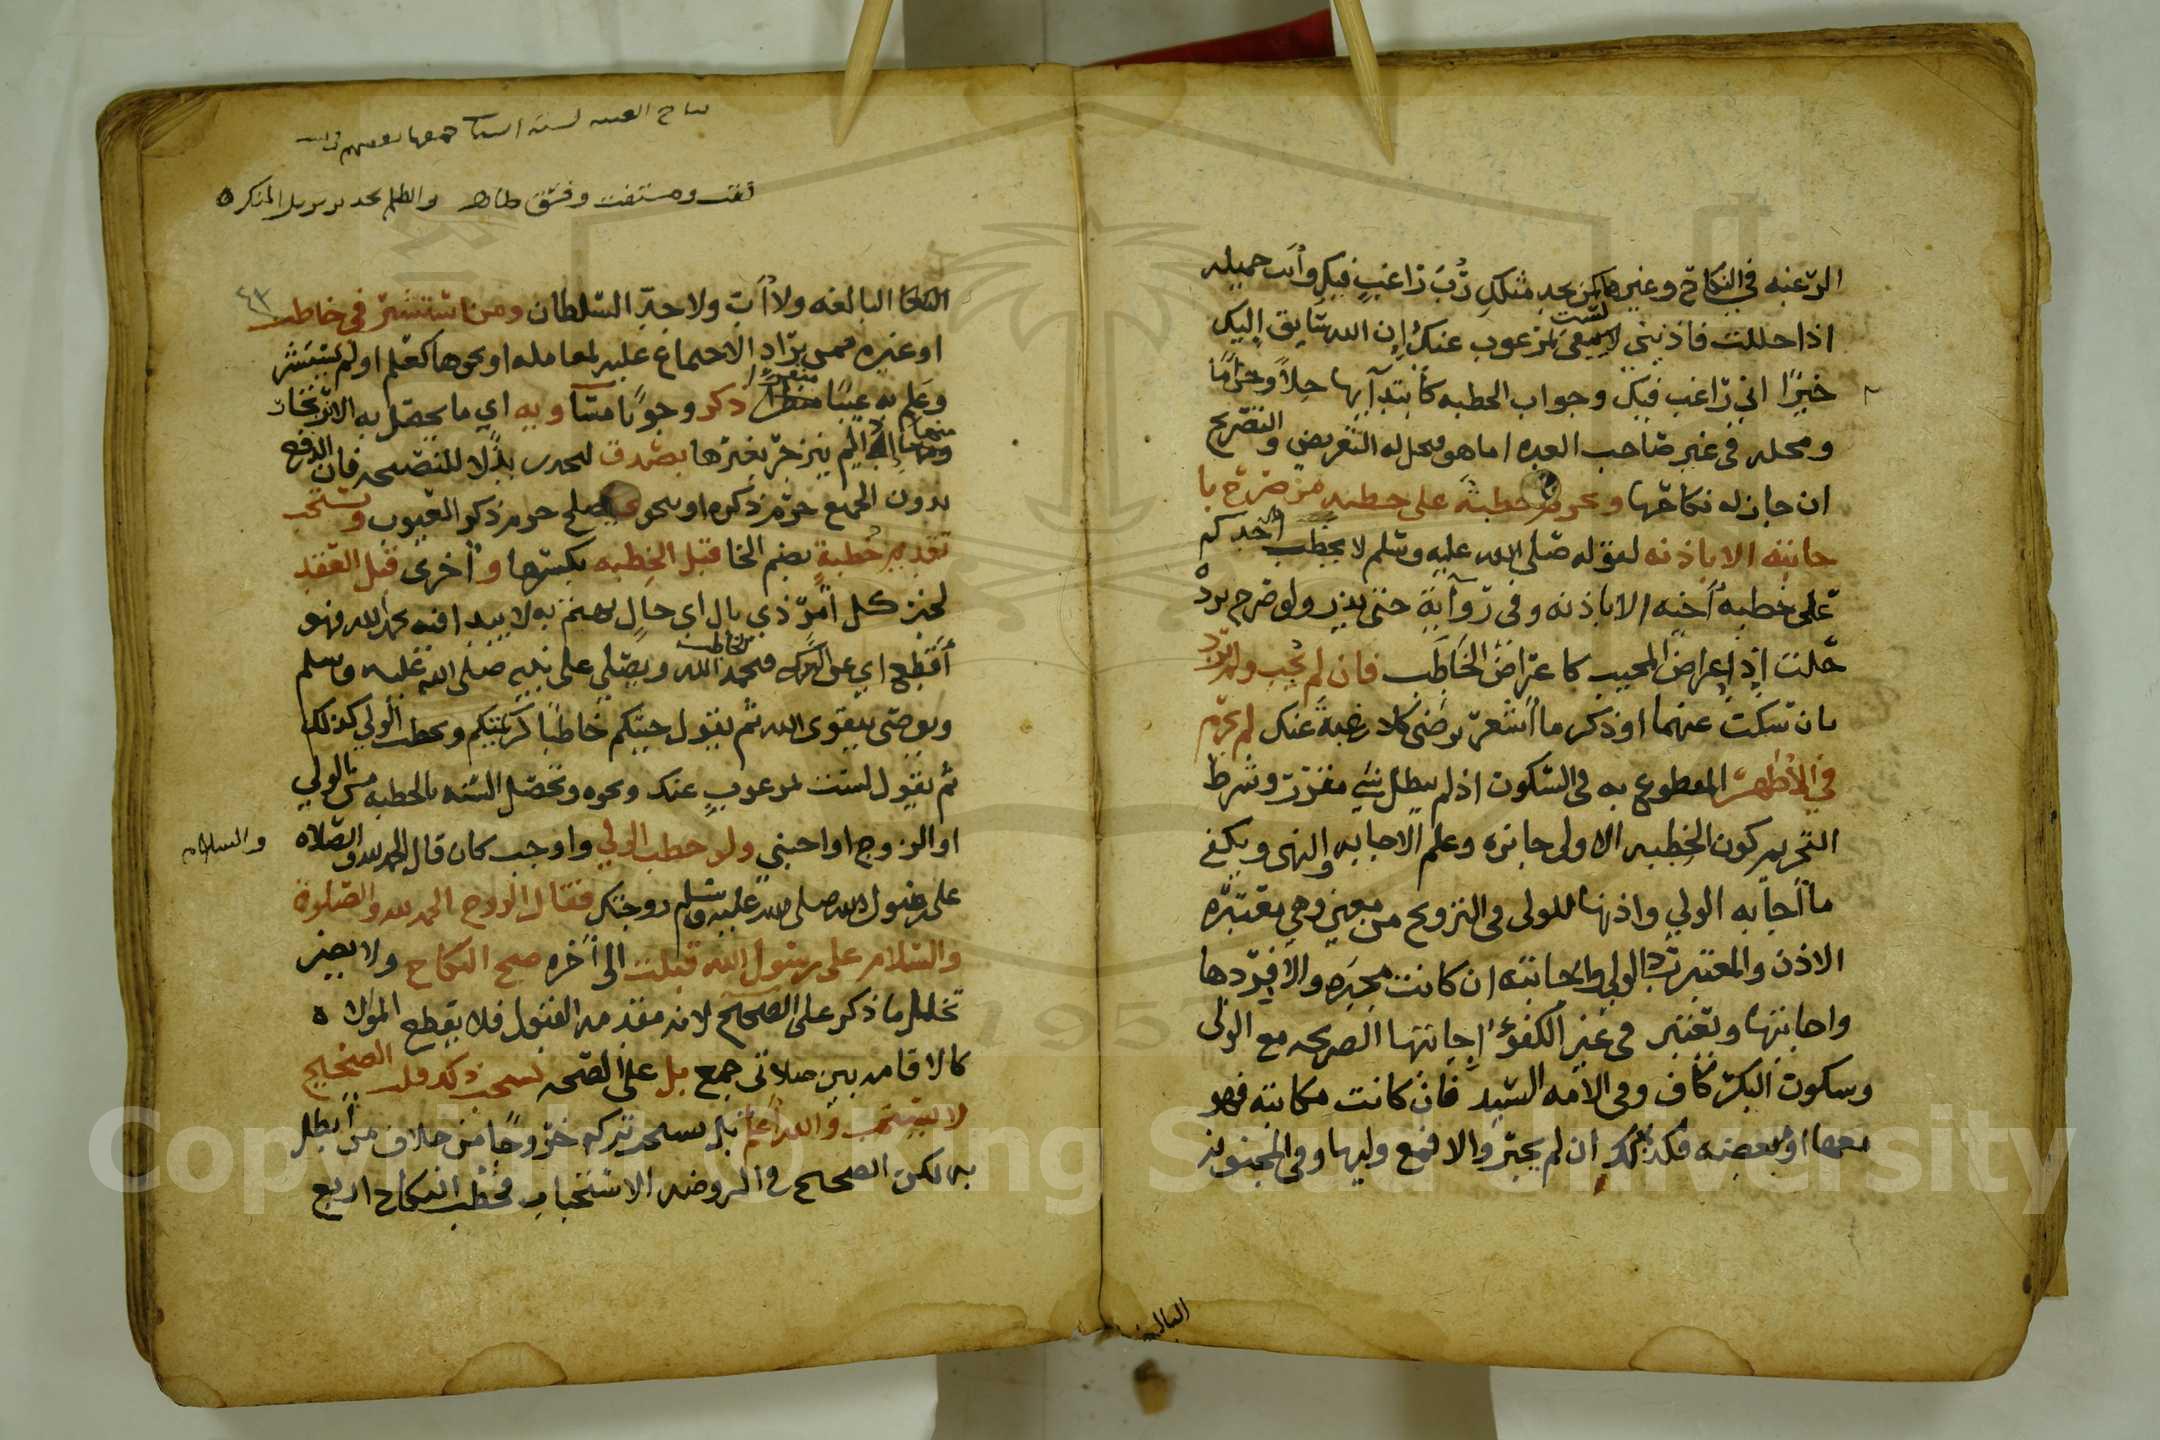 الرغبه في النكاح وغيرها كمن يجد مثلك رب راغب فيك وأنت جميله
اذا حللت فاذنيني لا تبقى لست بمرغوب عنك إن الله سايق إليك
خيرًا اني راغب فيك وجواب الخطبه كابتدآيها حلًا وحرامًا
ومحله في غير صاحب العده اما هو فيحل له التعريض والتصريح
ان جاز له نكاحها وتحرم خطبة على خطبه من صرح با
جابته الا باذنه لقوله صلى الله عليه وسلم لا يخطب احدكم
على خطبه أخيه الا باذنه وفي روآية حتى يذر ولو صرح برد
حلت إذ إعراض المجيب كاعراض الخاطب فان لم يُجب ولم يرد
بان سكت عنهما او ذكر ما أشعر برضى كلا رغبة عنك لم تحرم
في الأظهر المقطوع به في السكوت اذ لم يبطل شي مقرر وشرط
التحريم كون الخطبه الاولى جايزه وعلم الاجابه والنهي ويكفي
ما أجابه الولي واذنها للولي في التزويج من معين وهي معتبره
الاذن والمعتبر رد الولي واجابته ان كانت مجبره والا فردها
واجابتها وتعتبر في غير الكفؤ اجابتها الصريحه مع الولي
وسكوت البكر كاف وفي الامه السيد فان كانت مكاتبه فهو
معها او مبعضه فكذلك ان لم يجبر والا فمع وليها وفي المجنونه
البالغه
ثقت ومستفت وفسق ظاهر والظلم تحذير مزيل المنكر ه
٤٣
البالغه ولا أب ولا جد السلطان ومن استشير في خاطب
او غيره ممن يراد الاجتماع عليه لمعامله او نحوها كعلم او لم يستشر
وعلم به عيبًا ذكر وجوبًا مساويه اي ما يحصل به الانزجار
منها إن لم ينزجر بغيرها بصدق ليحذر بذلًا للنصيحه فان اندفع
بدون الجميع حرم ذكره او بنحو يصلح حرم ذكر العيوب ويستحب
تقديم خُطبة بضم الخا قبل الخِطبه بكسرها وأخرى قبل العقد
لخبر كل أمر ذي بال اي حال يهتم به لا يبدا فيه بحمد الله فهو
أقطع اي عن البركه فيحمد الله من يخاطب ويصلي على نبيه صلى الله عليه وسلم
ويوصي بتقوى الله ثم يقول جيتكم خاطبًا كريمتكم ويخطب الولي كذلك
ثم يقول لست بمرغوب عنك ونحوه وتحصل السنه بالخطبه من الولي
او الزوج او اجنبي ولو خطب الولي واوجب كان قال الحمد لله والصلاه
والسلام
على رسول الله صلى الله عليه وسلم زوجتك فقال الزوج الحمد لله والصلوة
والسلام على رسول الله قبلت الى آخره صح النكاح ولا يضر
تخلل ما ذكر على الصحيح لانه مقدمه القبول فلا يقطع الموالاه
كالاقامه بين صلاتي جمع بل على الصحه يستحب ذلك قلت الصحيح
لا يستحب والله أعلم بل يستحب تركه خروجًا من خلاف من أبطل
به لكن الصحيح في الروضه الاستحباب فخطب النكاح اربع